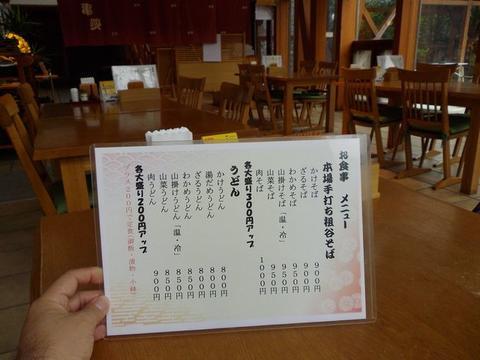 お食事 メニュー
本場手打ち祖谷そば
かけそば 900円
ざるそば 900円
わかめそば 950円
山掛けそば「温・冷」 950円
山菜そば 950円
肉そば 1000円
各大盛り300円アップ
うどん
かけうどん 800円
湯だめうどん 800円
ざるうどん 800円
わかめうどん 850円
山掛けうどん「温・冷」 850円
山菜うどん 850円
肉うどん 900円
各大盛り200円アップ